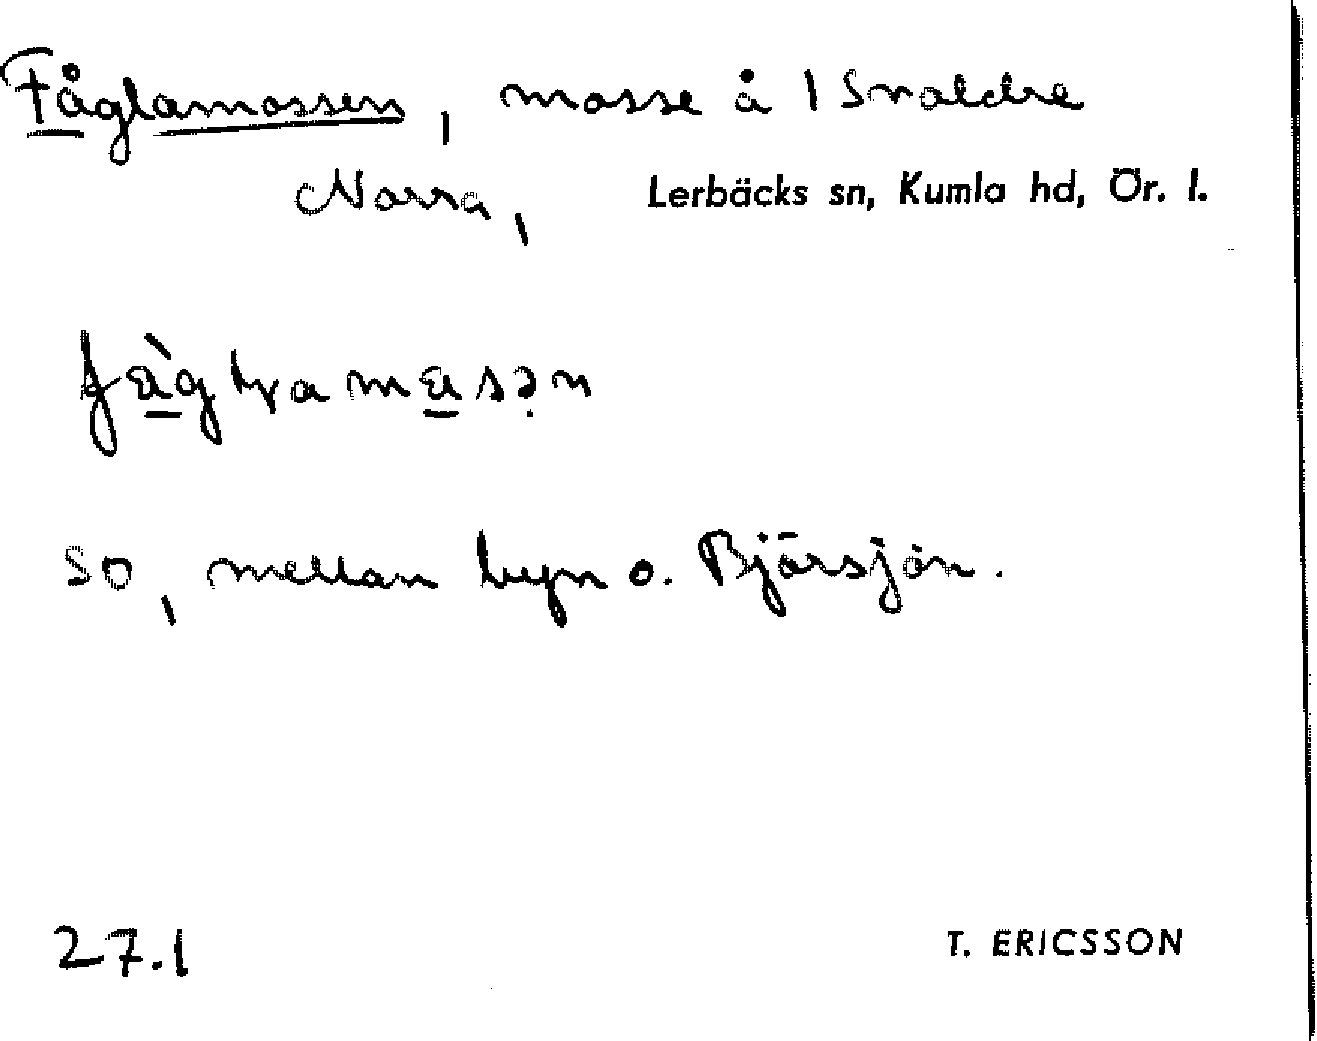 Fåglamossen, mosse å 1
Norra, Lerbäcks sn, Kumla hd, Ör. l.
so, mellan byn o. Bjärsjön.
27.1 T. ERICSSON